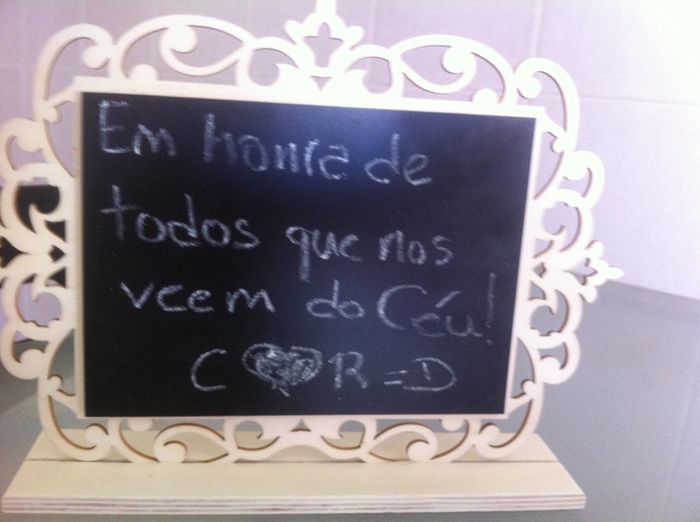 Em honra de
todos que nos
veem do Céu!
C ♥ R = D